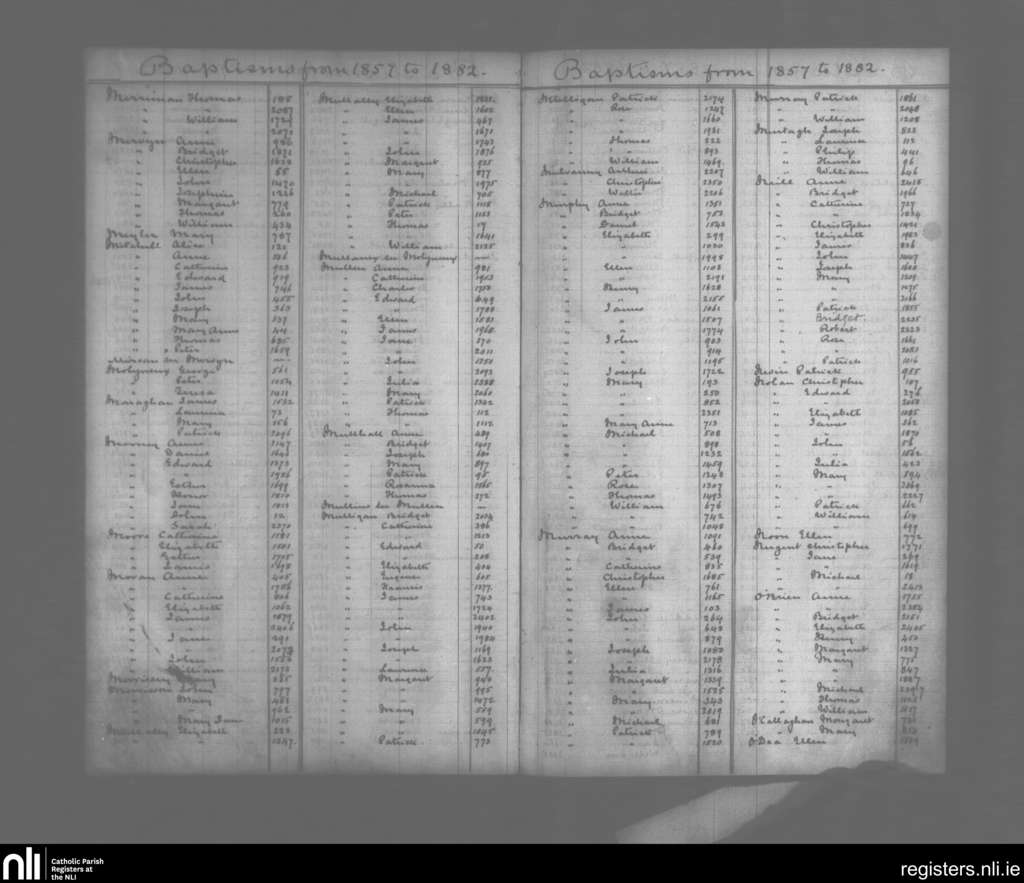 Baptisms from 1857 to 1882.
Merriman Thomas 185
" " 2087
" William 1724
" " 2071
Mervyn Anne 996
" Bridget 1871
" Christopher 1632
" Ellen 55
" John 1470
" Josephine 1926
" Margaret 779
" Thomas 260
" William 434
Meyler Mary 787
Mitchell Alice 122
" Anne 136
" Catherine 923
" Edward 919
" James 746
" John 455
" Joseph 363
" Mary 137
" Mary Anne 44
" Thomas 635
" Peter 1659
Molyneux George 561
" Peter 1054
" Teresa 1431
Monaghan James 1532
" Laurence 73
" Mary 156
" Patrick 2096
Mooney Anne 2147
" Daniel 1640
" Edward 1373
" " 1986
" Esther 1699
" Honor 1810
" Jane 1812
" John 12
" Sarah 2270
Moore Catherine 1581
" Elizabeth 1501
" Esther 1715
" James 1698
Moran Anne 405
" " 1756
" Catherine 806
" Elizabeth 1062
" James 1879
" " 2406
" Jane 291
" " 2078
" John 1583
" William 2173
Morrissey Mary 285
Morrison John 797
" Mary 483
" " 962
" Mary Jane 1015
Mullally Elizabeth 223
" " 1347
Mullally Elizabeth
" Ellen 1602
" James 467
" " 1671
" " 1743
" John 1876
" Margaret 925
" Mary 877
" " 1975
" Michael 705
" Patrick 1118
" Peter 1153
" Thomas 17
" " 1641
" William 2125
Mullaney see Molyneux —
Mullen Anne 981
" Catherine 1963
" Charles 1713
" Edward 649
" " 1788
" Ellen 1581
" James 1968
" Jane 570
" " 2011
" John 1350
" " 2093
" Julia 2228
" Mary 2060
" Patrick 1342
" Thomas 112
" " 1112
Mullhall Anne 489
" Bridget 1407
" Joseph 680
" Mary 897
" Patrick 95
" Rosanna 1565
" Thomas 272
Mullins see Mullen —
Mulligan Bridget 2104
" Catherine 306
" " 1213
" Edward 50
" " 208
" Elizabeth 404
" Eugene 605
" Francis 1377
" James 743
" " 1724
" " 2402
" John 1900
" " 1984
" Joseph 1169
" " 1623
" Laurence 557
" Margaret 940
" " 995
" " 1472
" Mary 559
" " 599
" " 1045
" Patrick 773
Baptisms from 1857 to 1882.
Mulligan Patrick 2174
" Rose 1247
" " 1660
" " 1981
" Thomas 222
" " 893
" William 1469
Mulvanny Arthur 2207
" Christopher 2350
" Walter 2206
Murphy Anne 1351
" Bridget 753
" Daniel 1542
" Elizabeth 299
" " 1030
" " 1998
" Ellen 1102
" " 2191
" Henry 1628
" " 2155
" James 1061
" " 1507
" " 1774
" John 903
" " 914
" " 1195
" Joseph 1722
" Mary 193
" " 250
" " 852
" " 2351
" Mary Anne 713
" Michael 508
" " 898
" " 1232
" " 1459
" Peter 1248
" Rose 1307
" Thomas 1493
" William 676
" " 742
" " 1048
Murray Anne 1091
" Bridget 460
" " 539
" Catherine 825
" Christopher 1685
" Ellen 761
" " 1165
" James 103
" John 264
" " 643
" " 879
" Joseph 1082
" " 2178
" Julia 1316
" Margaret 1339
" " 1525
" Mary 343
" " 2019
" Michael 601
" Patrick 789
" " 1520
Murray Patrick 1861
" " 2048
" William 1208
Murtagh Joseph 822
" Laurence 112
" Philip 441
" Thomas 96
" William 646
Neill Anne 2018
" Bridget 1966
" Catherine 727
" " 1034
" Christopher 1421
" Elizabeth 1983
" James 826
" John 1407
" Joseph 1600
" Mary 1209
" " 1275
" " 2166
" Patrick 1855
" Bridget 2235
" Robert 2223
" Rose 1661
" " 2051
" Patrick 1016
Nevin Patrick 955
Nolan Christopher 107
" Edward 276
" " 2053
" Elizabeth 1085
" James 362
" " 1870
" John 56
" " 1562
" Julia 423
" Mary 594
" " 2069
" " 2227
" Patrick 662
" William 614
" " 699
Noon Ellen 772
Nugent Christopher 1771
" Jane 269
" " 1619
" Michael 18
" " 2413
O'Brien Anne 1755
" " 2254
" Bridget 2151
" Elizabeth 2405
" Henry 450
" Margaret 1327
" Mary 775
" " 847
" " 1887
" Michael
" Thomas
" William
O'Callaghan Margaret
" Mary
O'Dea Ellen
nli
Catholic Parish
Registers at
the NLI
registers.nli.ie